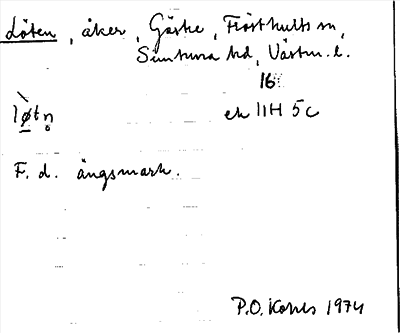 Löten, åker, Göske, Frösthults sn,
Simtuna hd, Västm. l.
16
løtn̥ ek 11H 5c
F. d. ängsmark.
P.O. 1974